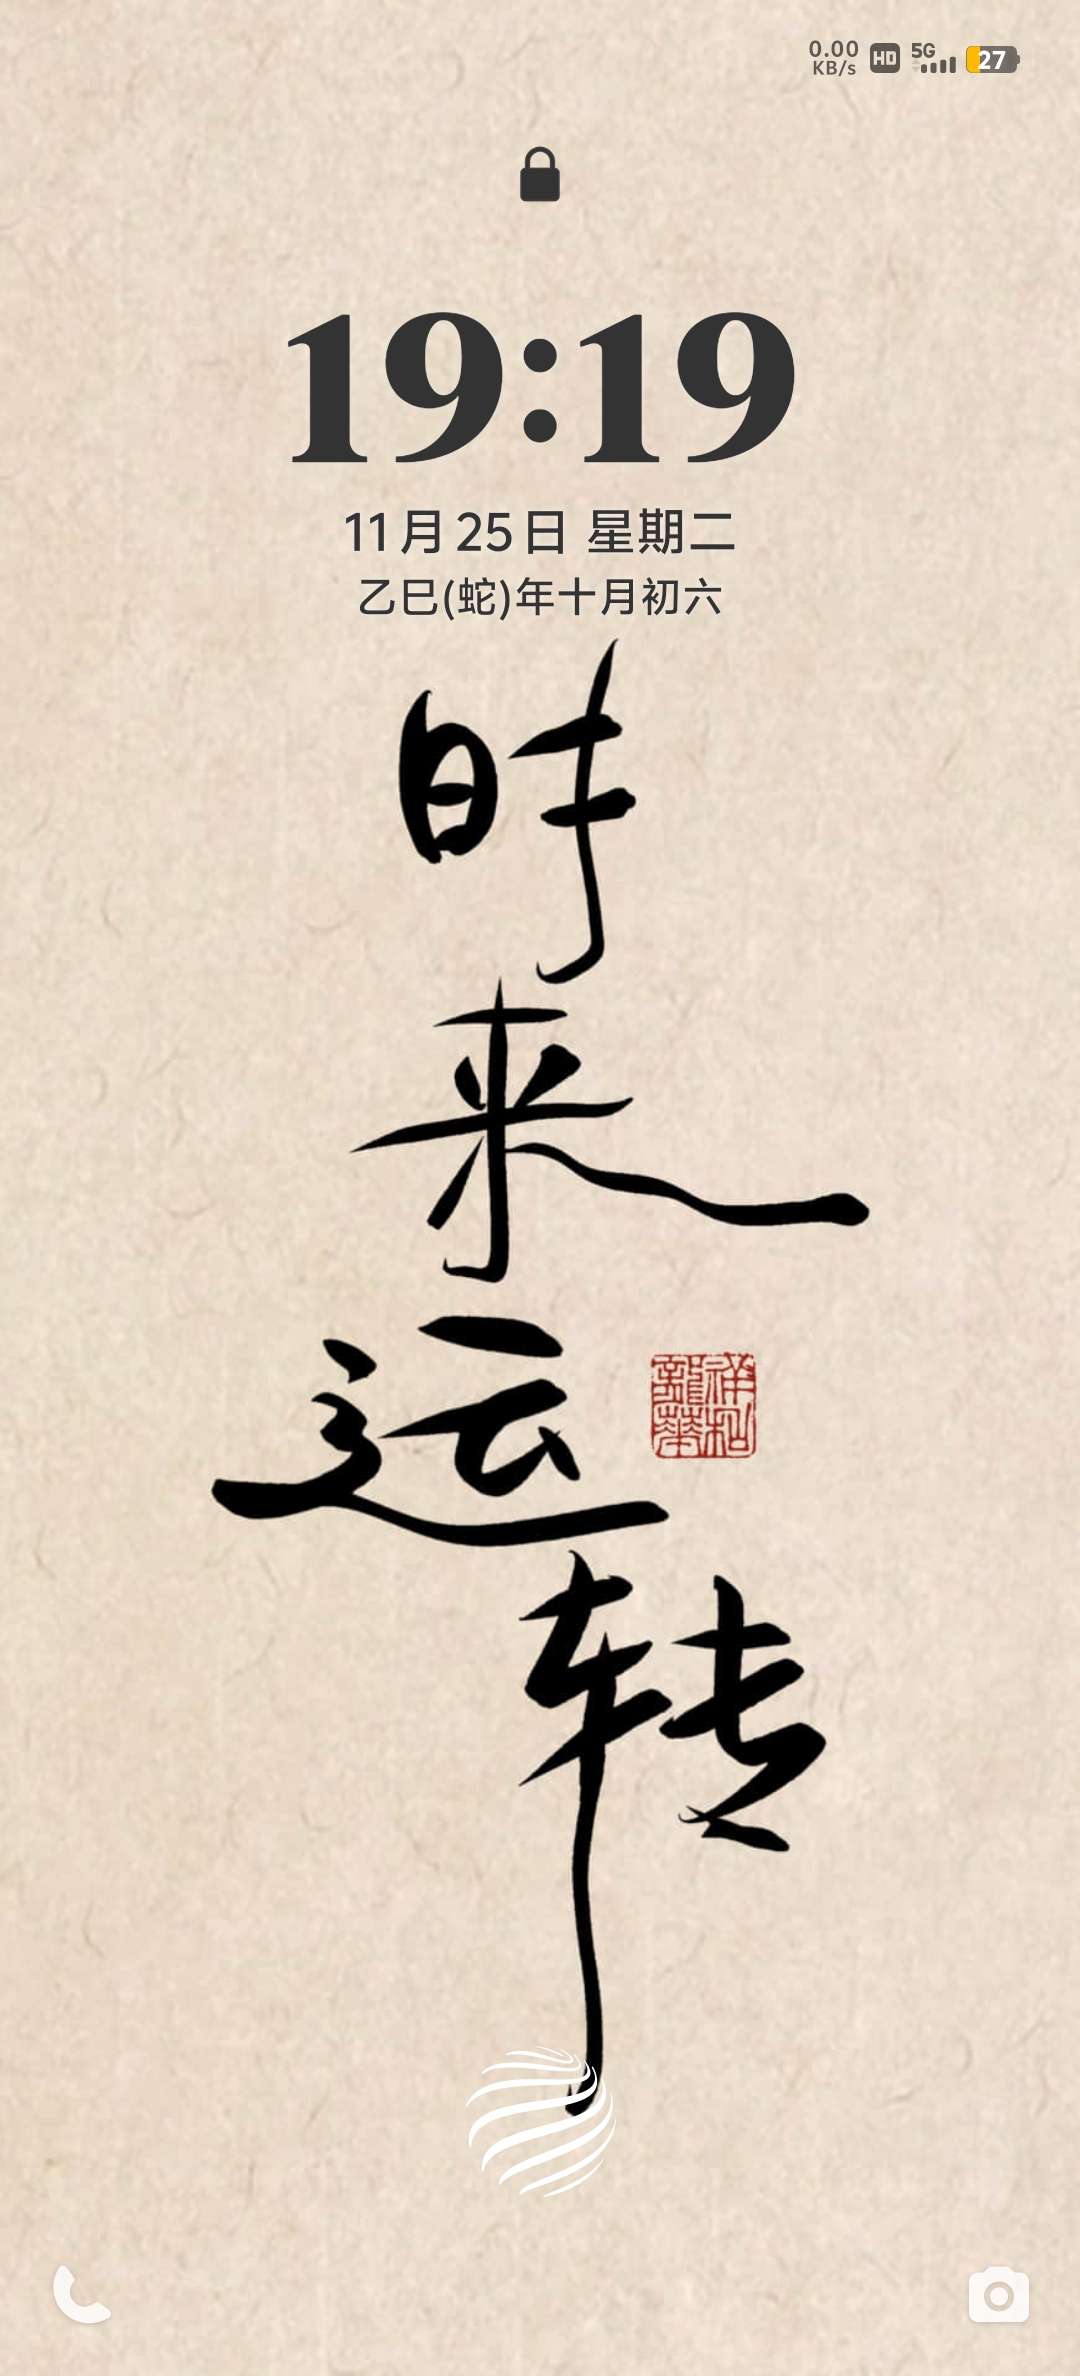 0.00
KB/s
HD
5G
27
19:19
11月25日 星期二
乙巳(蛇)年十月初六
时
来
运
转